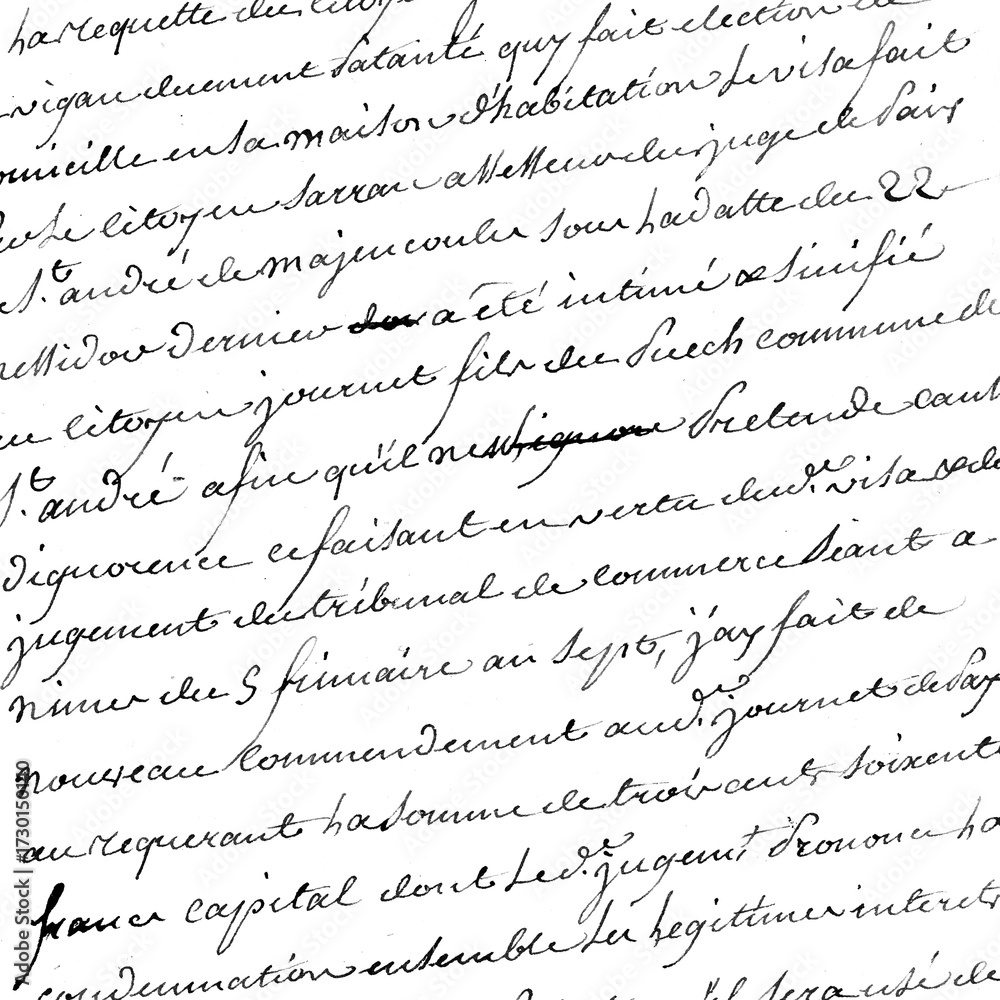 La requette du citoy
vigan duement patanté quy fait election de
omicille en sa maison d'habitation Le visa fait
par Le citoyen sarran assesseur du juge de paix
de St. andré de majencoules sous La datte du 22
messidor dernier a été intimé & sinifié
au citoyen journet fils du puech commune de
St. andré afin qu'il ne pretende caus
d'ignorence ce faisant en vertu dud.r visa & de
jugement du tribunal de commerce séant a
nimes du 5 frimaire an sept, j'ay fait de
nouveau commendement aud.r journet de pay
au requerant La somme de trois cents soixente
francs capital dont Led.r jugemt prononce La
condemnation ensemble Les Legitimes interets
qu'il sera usé de
Adobe Stock | #1730150140
Adobe Stock